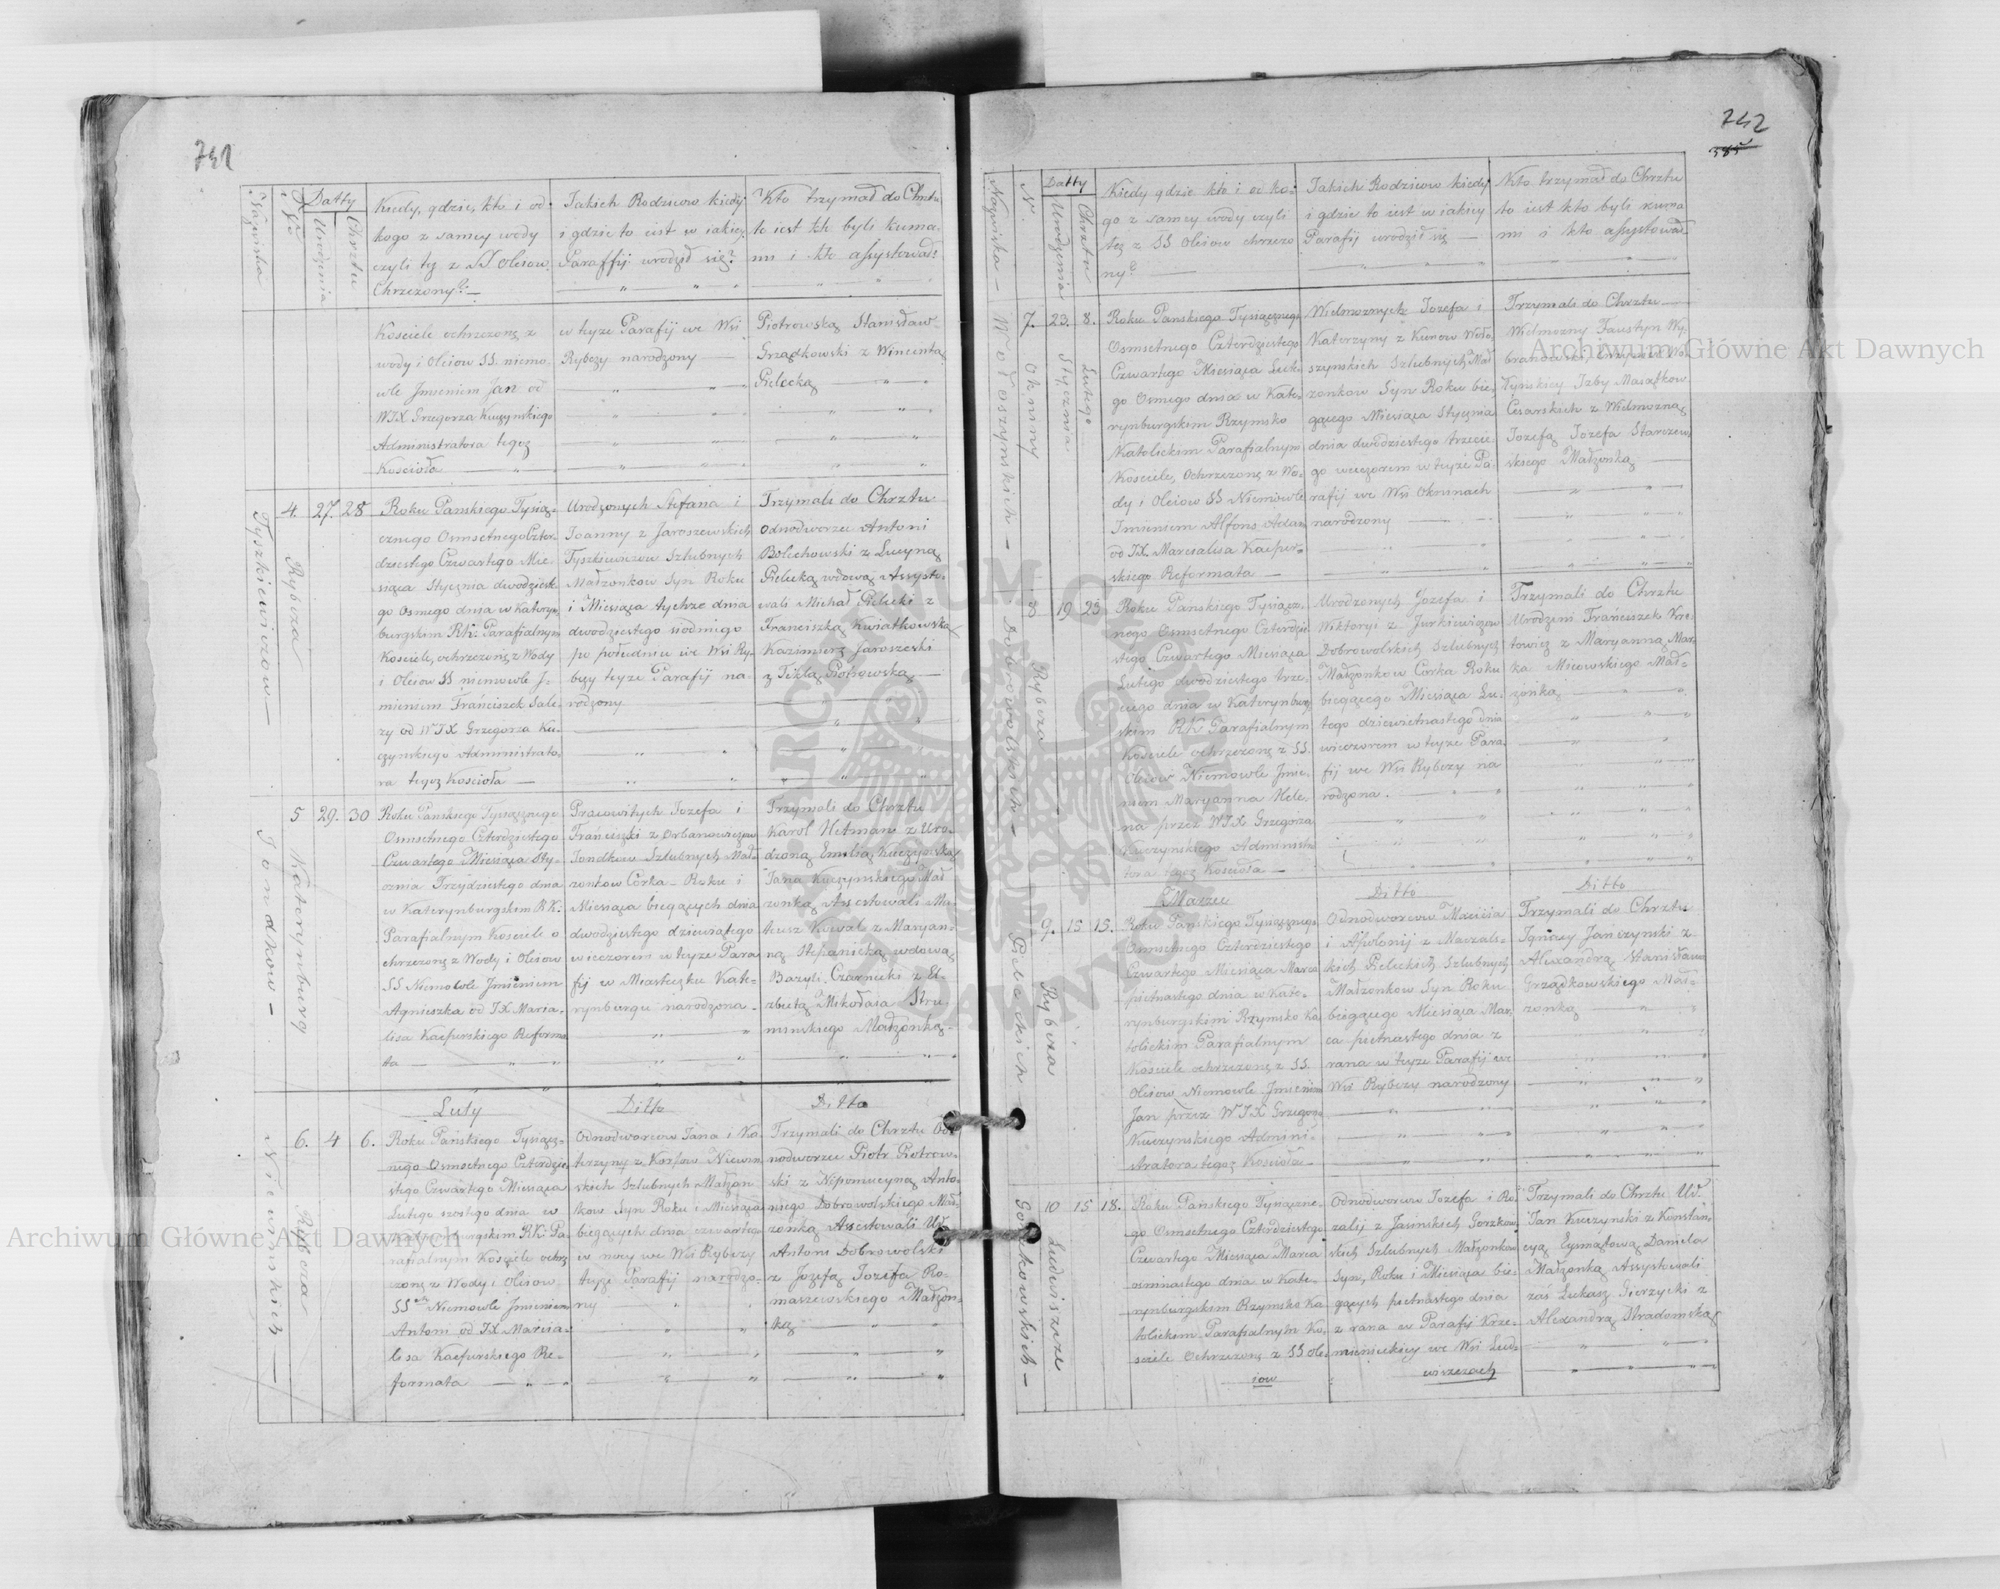 741
Nazwiska
Datty
Urodzenia
Chrztu
Kiedy, gdzie, kto i od
kogo z samey wody
czyli też z SS Olejow
Chrzczony?
Jakich Rodzicow kiedy
i gdzie to iest w iakiey
Paraffij urodził się?
Kto trzymał do Chrztu
to iest kto byli kuma-
mi i kto assystował?
Kosciele ochrzczone z
wody i Oleiow SS. niemo-
wle Jmieniem Jan od
WJX Grzegorza Kuczynskiego
Administratora tegoż
Kosciola
w teyże Parafij we Wsi
Rybczy narodzony
Piotrowską Stanisław
Grządkowski z Wincentą
Pielecką
Tyszkiewiczow
4.
Rybcza
27.
28
Roku Panskiego Tysią-
cznego Osmsetnego Czter-
dziestego Czwartego Mie-
siąca Stycznia dwodzieste-
go Osmego dnia w Kateryn-
burgskim RK. Parafialnym
Kosciele, ochrzczone z Wody
i Oleiow SS niemowle J-
mieniem Franciszek Sale-
zy od WJX Grzegorza Ku-
czynskiego Administrato-
ra tegoż Kosciola
Urodzonych Stefana i
Joanny z Jaroszewskich
Tyszkiewiczow Szlubnych
Małzonkow Syn Roku
i Miesiąca tychże dnia
dwodziestego siodmego
po południu we Wsi Ry-
bczy teyże Parafij na-
rodzony
Trzymali do Chrztu
Odnodworzec Antoni
Bolechowski z Lucyną
Pielecką wdową Assysto-
wali Michał Pielecki z
Franciszką Kwiatkowską
Kazimierz Jaroszeski
z Teklą Piotrowską
Jondkow
5
Katerynburg
29.
30
Roku Panskiego Tysiącznego
Osmsetnego Czterdziestego
Czwartego Miesiąca Sty-
cznia Trzydziestego dnia
w Katerynburgskim RK.
Parafialnym Kosciele o
chrzczone z Wody i Oleiow
SS Niemowle Jmieniem
Agnieszka od JX Marsa-
lisa Kacpurskiego Reforma
ta
Pracowitych Jozefa i
Franciszki z Orbanowiczow
Jondkow Szlubnych Mał-
zonkow Córka Roku i
Miesiąca bieżących dnia
dwodziestego dziewiątego
wieczorem w teyże Para
fij w Miasteczku Kate-
rynburgu narodzona
Trzymali do Chrztu
Karol Hetman z Uro-
dzoną Emilią Kuczynską
Jana Kuczynskiego Mał
zonką Assestowali Ma-
teusz Kowal z Maryan-
ną Stepanicką wdową
Bazyli Czarnecki z El-
zbietą Mikołaia Stru
minskiego Małzonką
Luty
Ditto
Ditto
Niewinskich
6.
Rybcza
4
6.
Roku Panskiego Tysiącz-
nego Osmsetnego Czterdzie-
stego Czwartego Miesiąca
Lutego szostego dnia w
Katerynburgskim RK. Pa
rafialnym Kosciele ochrz
czone z Wody i Oleiow
SS Niemowle Jmieniem
Antoni od JX Marsa-
lisa Kacpurskiego Re-
formata
Odnodworcow Jana i Ka-
terzyny z Karpow Niewin
skich Szlubnych Małzon
kow Syn Roku i Miesiąca
bieżących dnia czwartego
w nocy we Wsi Rybczy
teyże Parafij narodzo-
ny
Trzymali do Chrztu Od-
nodworzec Piotr Piotrow-
ski z Nepomuceną Anto-
niego Dobrowolskiego Mał
zonką Assestowali Ur.
Antoni Dobrowolski
z Jozefą Jozefa Ro-
maszewskiego Małzon-
ką
742
Nazwiska
N.
Datty
Urodzenia
Chrztu
Kiedy gdzie kto i od ko-
go z samey wody czyli
też z SS Oleiow chrzczo
ny?
Jakich Rodzicow kiedy
i gdzie to iest w iakiey
Parafij urodził się
Kto trzymał do Chrztu
to iest kto byli kuma
mi i kto assystował
Wołoszynskich
7.
Okniny
23.
Stycznia
8.
Lutego
Roku Panskiego Tysiącznego
Osmsetnego Czterdziestego
Czwartego Miesiąca Lute-
go Osmego dnia w Kate-
rynburgskim Rzymsko
Katolickim Parafialnym
Kosciele, Ochrzczone z Wo-
dy i Oleiow SS Niemowle
Jmieniem Alfons Adam
od JX. Marsalisa Kacpur-
skiego Reformata
Wielmoznych Jozefa i
Katerzyny z Kunow Woło-
szynskich Szlubnych Mał
zonkow Syn Roku bie-
żącego Miesiąca Stycznia
dnia dwódziestego trzecie-
go wieczorem w teyże Pa-
rafij we Wsi Okninach
narodzony
Trzymali do Chrztu
Wielmozny Faustyn Wy-
branowski,
Cesarskich z Wielmozną
Jozefą Jozefa Starczew
skiego Małzonką
Dobrowolskich
8
Rybcza
19
23
Roku Pańskiego Tysiącz-
nego Osmsetnego Czterdzie
stego Czwartego Miesiąca
Lutego dwodziestego trze-
ciego dnia w Katerynburg
skim RK Parafialnym
Kosciele ochrzczone z SS.
Oleiow Niemowle Jmie-
niem Maryanna Hele-
na przez WJX Grzegorza
Kuczynskiego Administra
tora tegoż Kosciola
Urodzonych Jozefa i
Wiktoryi z Jurkiewiczow
Dobrowolskich Szlubnych
Małzonkow Corka Roku
bieżącego Miesiąca Lu-
tego dziewietnastego dnia
wieczorem w teyże Para-
fij we Wsi Rybczy na
rodzona
Trzymali do Chrztu
Urodzeni Franciszek
z Maryanną Mar-
ka Micowskiego Mał-
zonką
Marzec
Ditto
Ditto
Pieleckich
9.
Rybcza
15
15.
Roku Pańskiego Tysiącznego
Osmsetnego Czterdziestego
Czwartego Miesiąca Marca
piętnastego dnia w Kate-
rynburgskim Rzymsko Ka
tolickim Parafialnym
Kosciele ochrzczone z SS.
Oleiow Niemowle Jmieniem
Jan przez WJX Grzegorza
Kuczynskiego Admini-
stratora tegoż Kosciola
Odnodworcow Macieia
i Apolonij z
Pieleckich Szlubnych
Małzonkow Syn Roku
bieżącego Miesiąca Mar
ca pietnastego dnia z
rana w teyże Parafij we
Wsi Rybczy narodzony
Trzymali do Chrztu
Ignacy Janczynski z
Alexandrą Stanisława
Grządkowskiego Mał-
zonką
Gorzkowskich
10
Ludwiszcze
15
18.
Roku Panskiego Tysiączne-
go Osmsetnego Czterdziestego
Czwartego Miesiąca Marca
osmnastego dnia w Kate-
rynburgskim Rzymsko Ka
tolickim Parafialnym Ko-
sciele Ochrzczone z SS Ole-
iow
Odnodworcow Jozefa i Ro-
zalij z Jasinskich Gorzkow
skich Szlubnych Małzonkow
Syn, Roku i Miesiąca bie-
żących piętnastego dnia
z rana w Parafij Krze-
mienieckiey we Wsi Lud-
wiszczach
Trzymali do Chrztu Ur.
Jan Kuczynski z Konstan-
cyą Eysmątową Daniela
Małzonką Assystowali
zas Łukasz Gierzycki z
Alexandrą Stradomską
Archiwum Główne Akt Dawnych
Archiwum Główne Akt Dawnych
ARCHIWUM GŁÓWNE AKT DAWNYCH